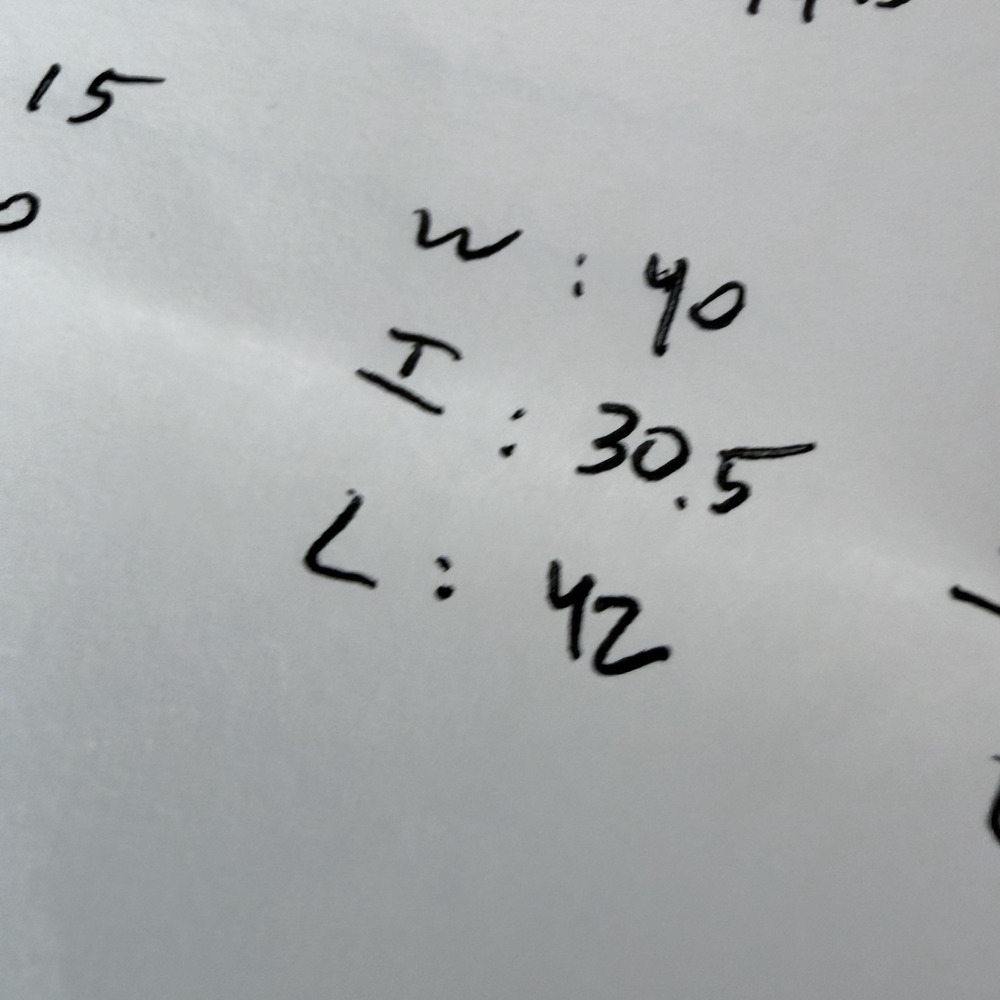 15
W : 40
I : 30.5
L : 42